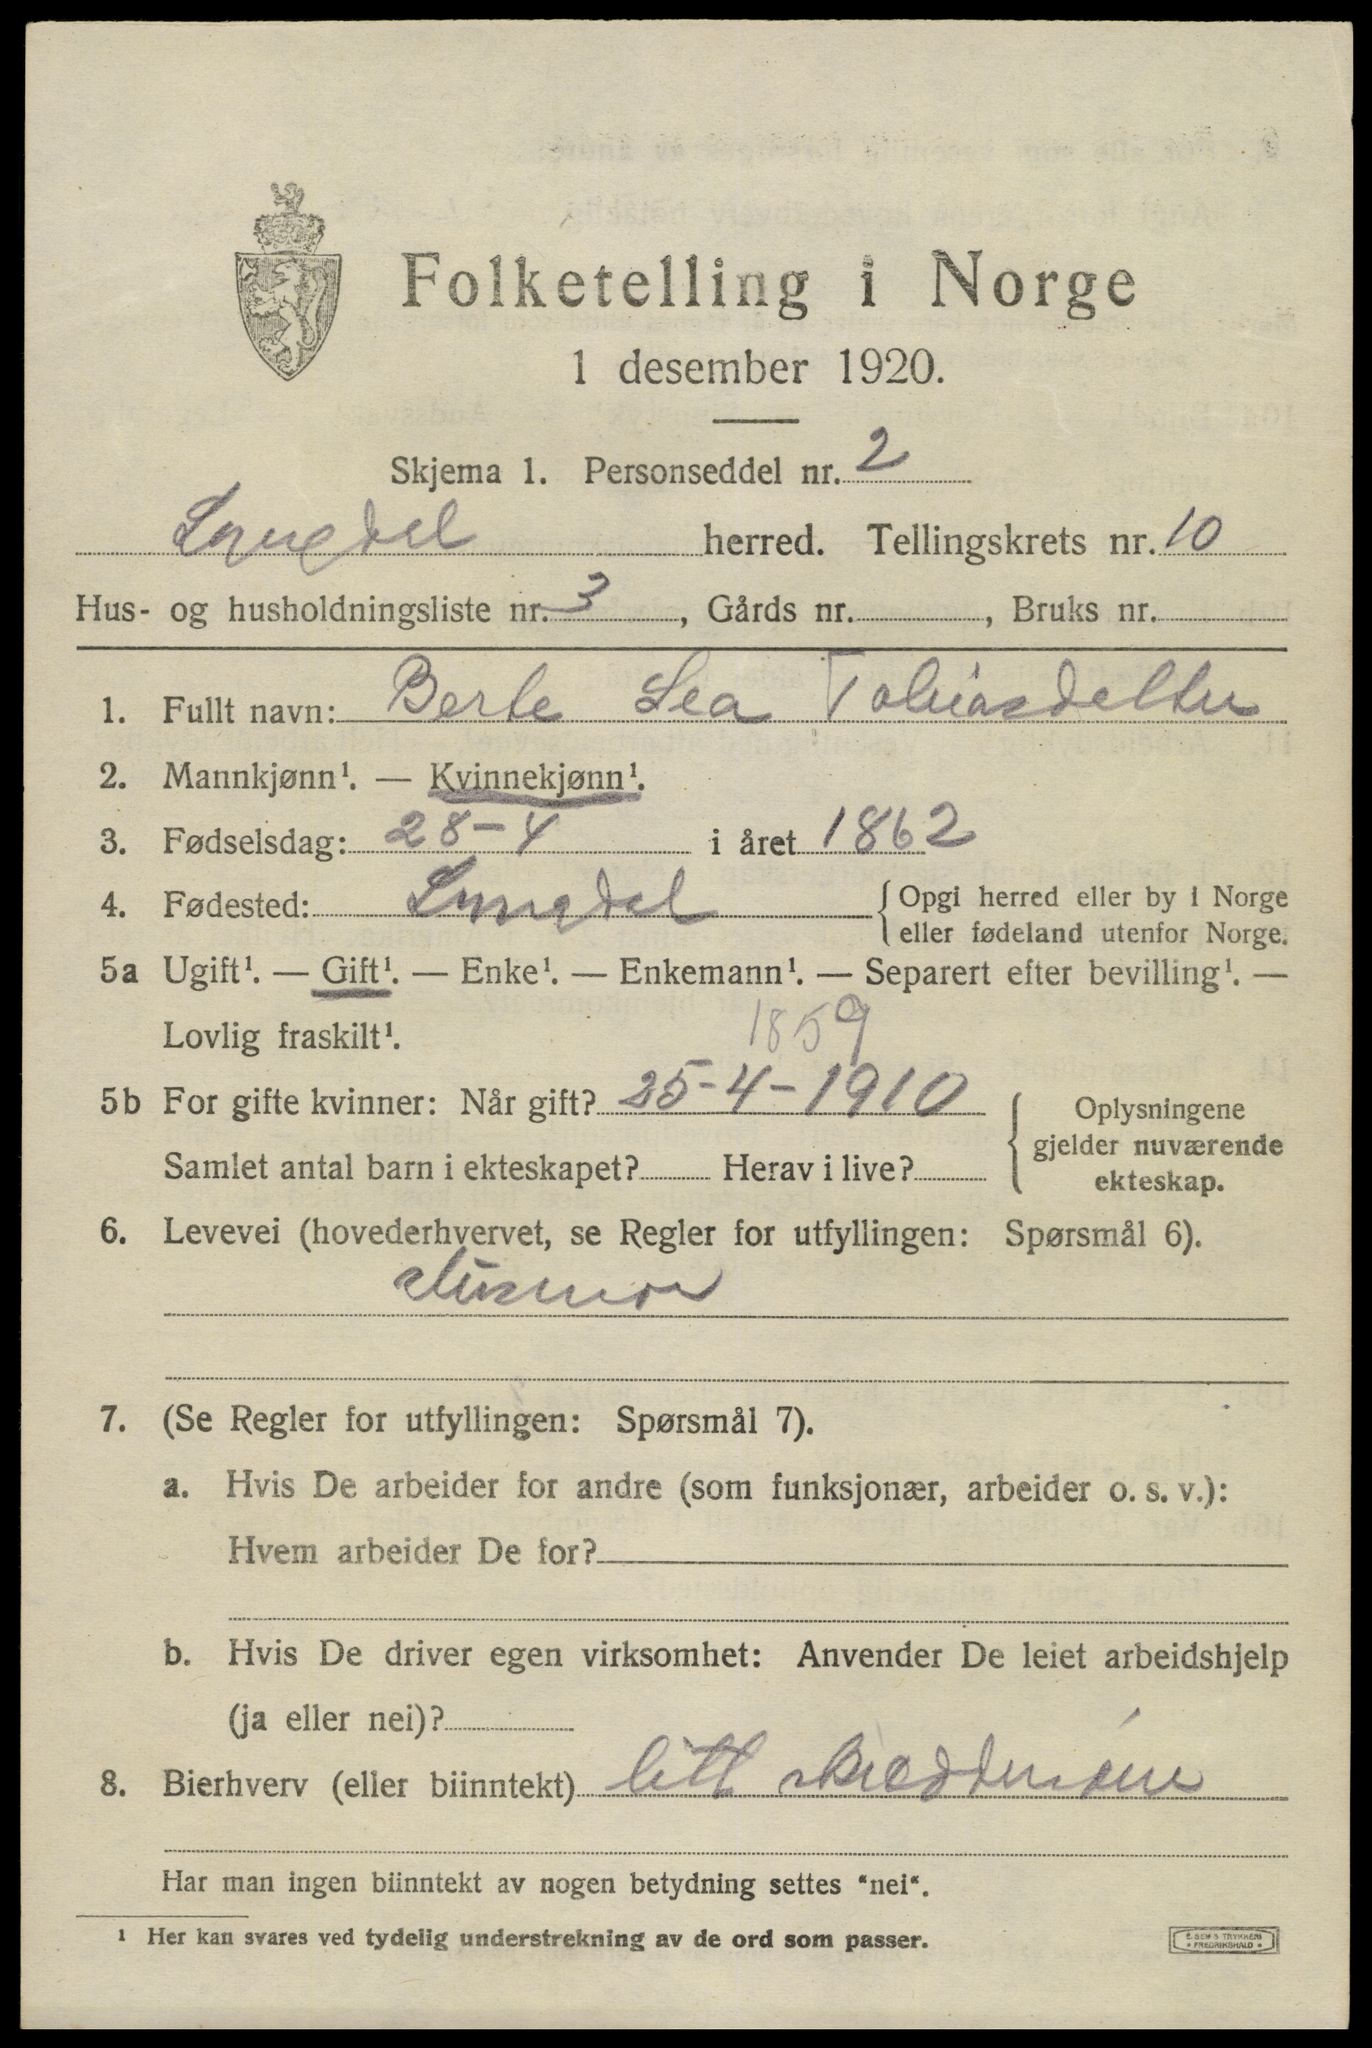 Folketelling i Norge
1 desember 1920.
Skjema 1. Personseddel nr. 2
Lyngdal herred. Tellingskrets nr. 10
Hus- og husholdningsliste nr. 3, Gårds nr. , Bruks nr.
1. Fullt navn: Berte Lea Tobiasdatter
2. Mannkjønn¹. — Kvinnekjønn¹.
3. Fødselsdag: 28-4 i året 1862
4. Fødested: Lyngdal { Opgi herred eller by i Norge
eller fødeland utenfor Norge.
5a Ugift¹. — Gift¹. — Enke¹. — Enkemann¹. — Separert efter bevilling¹. —
Lovlig fraskilt¹.
1859
5b For gifte kvinner: Når gift? 25-4-1910
Samlet antal barn i ekteskapet? Herav i live?
{ Oplysningene
gjelder nuværende
ekteskap.
6. Levevei (hovederhvervet, se Regler for utfyllingen: Spørsmål 6).
Husmor
7. (Se Regler for utfyllingen: Spørsmål 7).
a. Hvis De arbeider for andre (som funksjonær, arbeider o. s. v.):
Hvem arbeider De for?
b. Hvis De driver egen virksomhet: Anvender De leiet arbeidshjelp
(ja eller nei)?
8. Bierhverv (eller biinntekt) litt
Har man ingen biinntekt av nogen betydning settes "nei".
¹ Her kan svares ved tydelig understrekning av de ord som passer.
E. SEM'S TRYKKERI
• FREDRIKSHALD •